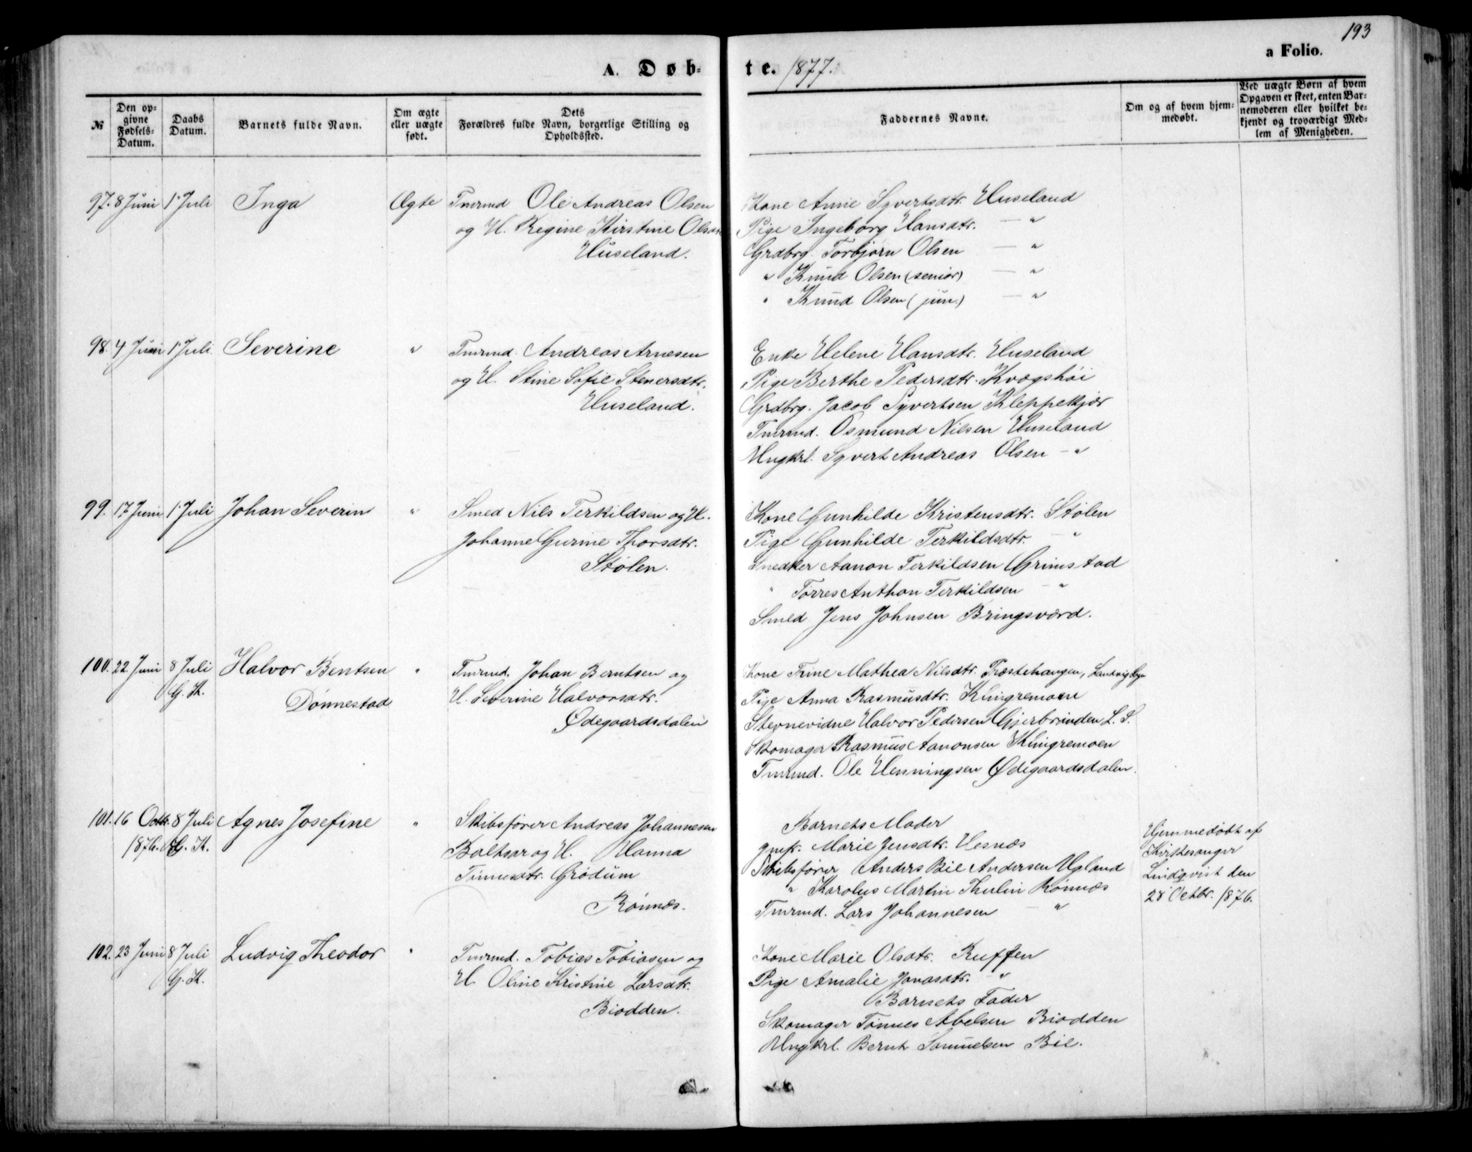 193
a Folio.
A. Døb-te. 1877.
№
Den opgivne Fødsels-Datum.
Daabs Datum.
Barnets fulde Navn.
Om ægte eller uægte født.
Dets Forældres fulde Navn, borgerlige Stilling og Opholdssted.
Faddernes Navne.
Om og af hvem hjemmedøbt.
Ved uægte Børn af hvem Opgaven er skeet, enten Barnemoderen eller hvilket bekjendt og troværdigt Medlem af Menigheden.
97. 8 Juni 1 Juli Inga Ægte Tmrmd Ole Andreas Olsen
og H. Regine Kirstine Olsdtr.
Huseland.
Kone Anne Syvertsdtr. Huseland
Pige Ingeborg Hansdtr. — "
Grdbrg. Torbjørn Olsen — "
" Knud Olsen (senior) — "
" Knud Olsen (jun) — "
98. 4 Juni 1 Juli Severine " Tmrmd. Andreas Arnesen
og H. Stine Sofie Stenersdtr.
Huseland.
Enke Helene Hansdtr. Huseland
Pige Berthe Pedersdtr. Kvægshøi
Grdbrg. Jacob Syvertsen Kleppekjær
Tmrmd. Osmund Nilsen Huseland
Ungkrl. Syvert Andreas Olsen — "
99. 17 Juni 1 Juli Johan Severin " Smed Nils Terkildsen og H.
Johanne Gurine Thorsdtr.
Stølen.
Kone Gunhilde Kristensdtr. Stølen
Pige Gunhilde Terkildsdtr — "
Snedker Aanon Terkildsen Grimstad
" Torres Anthon Terkildsen — "
Smed Jens Johnsen Bringsværd.
100. 22 Juni 8 Juli Halvor Bentsen " Tmrmd. Johan Berntsen og
G. K. Dønnestad H. Severine Halvorsdtr.
Ødegaardsdalen
Kone Trine Mathea Nilsdtr.
Pige Anna Rasmusdtr. Kingremoen
Stevnevidne Halvor Pedersen Gjerbrønden L. S.
Skomager Rasmus Aanonsen Kingremoen
Tmrmd. Ole Henningsen Ødegaardsdalen.
101. 16 Octbr. 8 Juli Agnes Josefine " Skibsfører Andreas Johannesen
1876. G. K. Boltsar og H. Hanna
Tinnesdtr. Grödum
Rönnæs.
Barnets Moder
Marie Jensdtr. Vesnæs
Skibsfører Anders Bie Andersen Ugland
" Karolus Martin Thulin Rønnæs
Tmrmd. Lars Johannesen — "
Hjemmedøbt af
Kirkesanger
Lindqvist den
28 Octbr. 1876.
102. 23 Juni 8 Juli Ludvig Theodor " Tmrmd. Tobias Tobiasen og
G. K. H. Oline Kristine Larsdtr.
Biodden.
Kone Marie Olsdtr. Ruffen
Pige Amalie Jonasdtr. "
Barnets Fader
Skomager Tønnes Abelsen Biodden
Ungkrl. Bernt Samuelsen Bie.